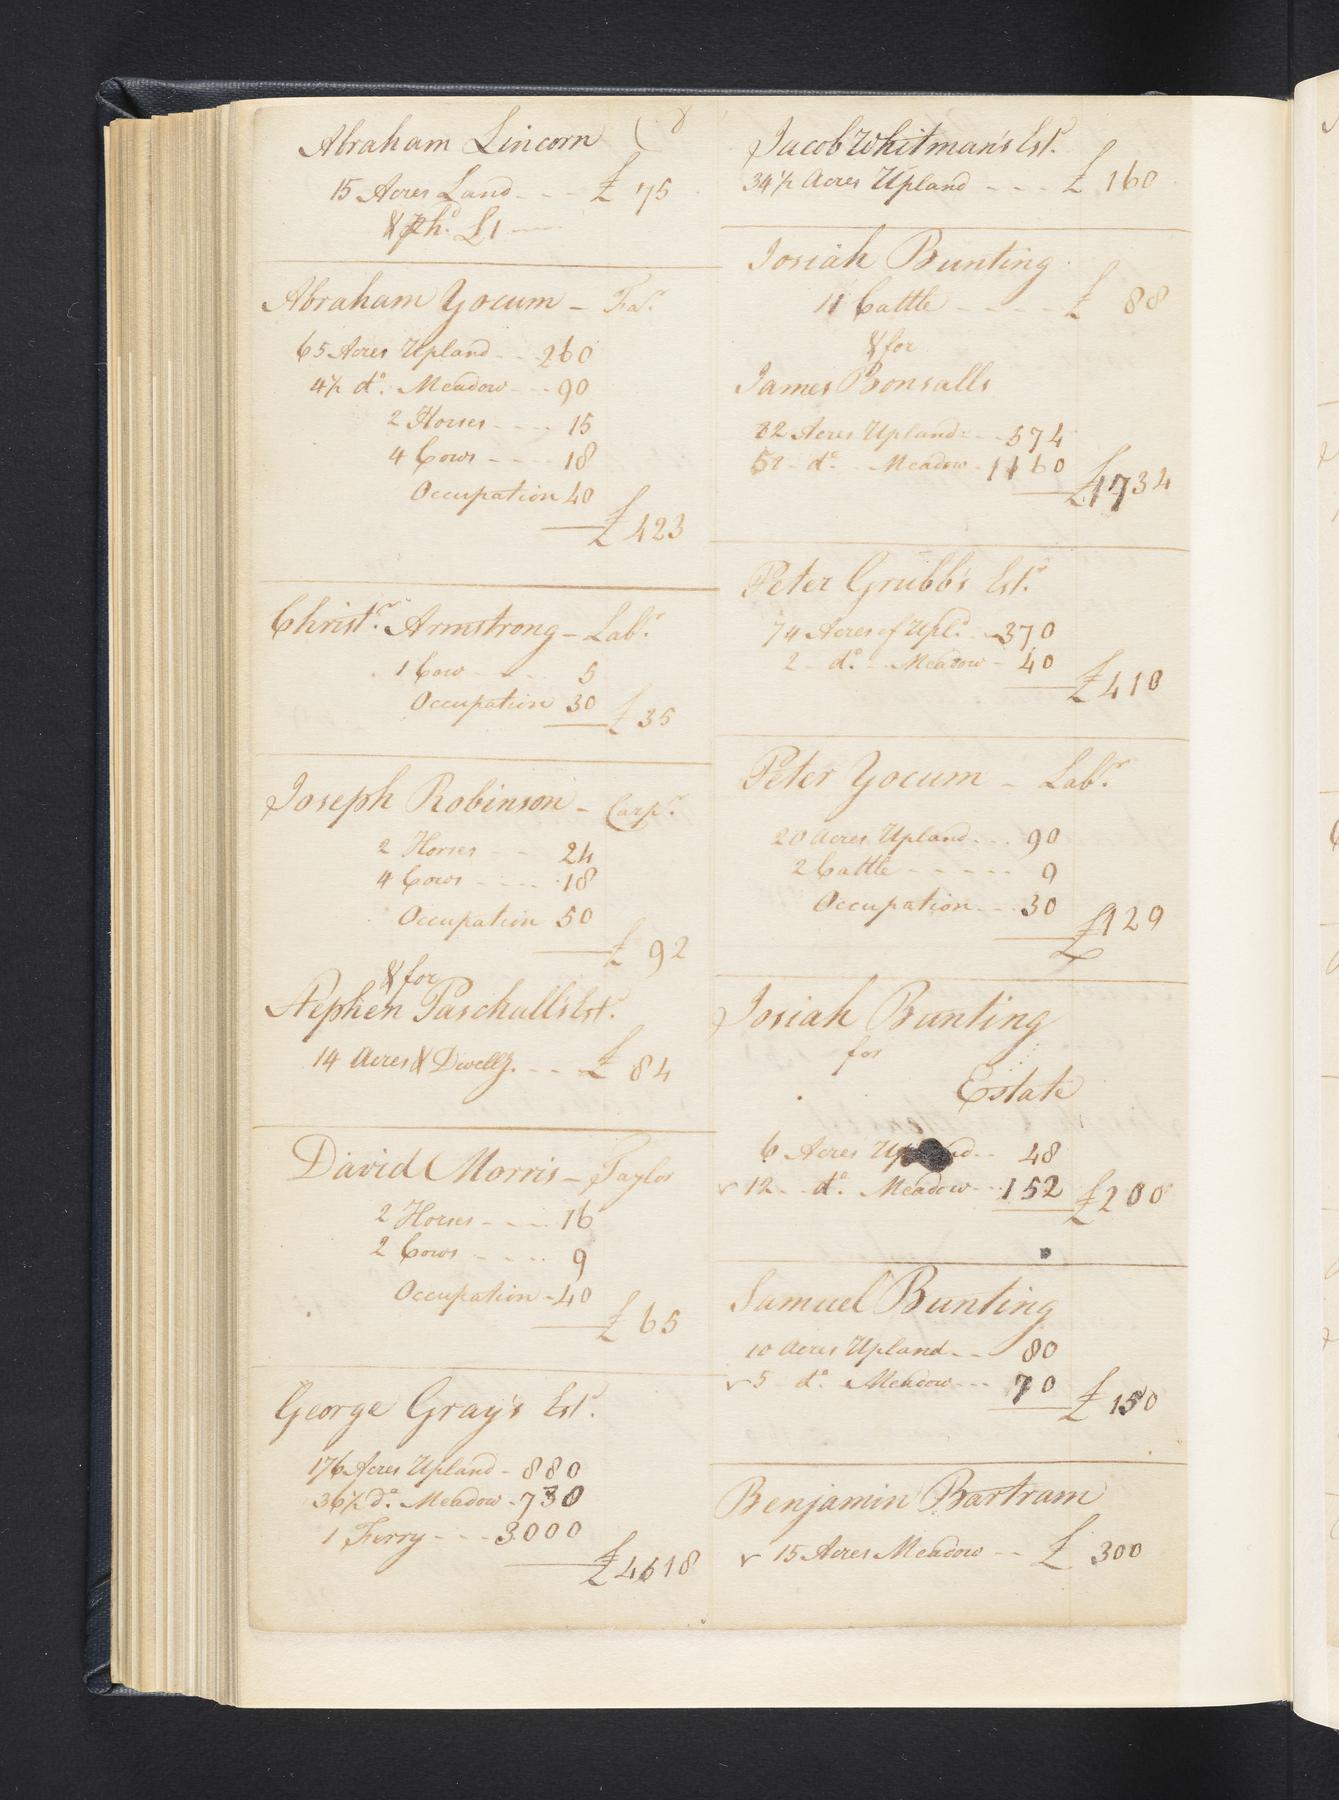 Abraham Lincorn
15 Acres Land - - - £ 75
& Ph.d £1 —
Abraham Yocum - Far.
65 Acres Upland - - 260
4½ do. Meadow - - 90
2 Horses - - - - 15
4 Cows - - - - 18
Occupation 40
£ 423
Christr. Armstrong - Labr.
1 Cow - - - 5
Occupation 30
£ 35
Joseph Robinson - Carpr.
2 Horses - - 24
4 Cows - - - - 18
Occupation 50
£ 92
& for
Stephen Paschall's Estd.
14 Acres & Dwellg. - - - £ 84
David Morris - Taylor
2 Horses - - - 16
2 Cows - - - - 9
Occupation - 40
£ 65
George Gray's Estd.
176 Acres Upland - 880
36½ do. Meadow - 730
1 Ferry - - - 3000
£ 4618
Jacob Whitman's Estd.
34½ Acres Upland - - - £ 160
Josiah Bunting
11 Cattle - - - - £ 88
& for
James Bonsalls
82 Acres Upland - - 574
58 - do. Meadow - 1160
£ 1734
Peter Grubb's Estd.
74 Acres of Upld. - 370
2 - do. - Meadow - 40
£ 410
Peter Yocum - Labr.
20 Acres Upland - - - 90
2 Cattle - - - - - 9
Occupation - - - 30
£ 129
Josiah Bunting
for
Estate
6 Acres Upland - - 48
12 - do. Meadow - - 152
£ 200
Samuel Bunting
10 Acres Upland - - 80
5 do. Meadow - - - 70
£ 150
Benjamin Bartram
15 Acres Meadow - - £ 300